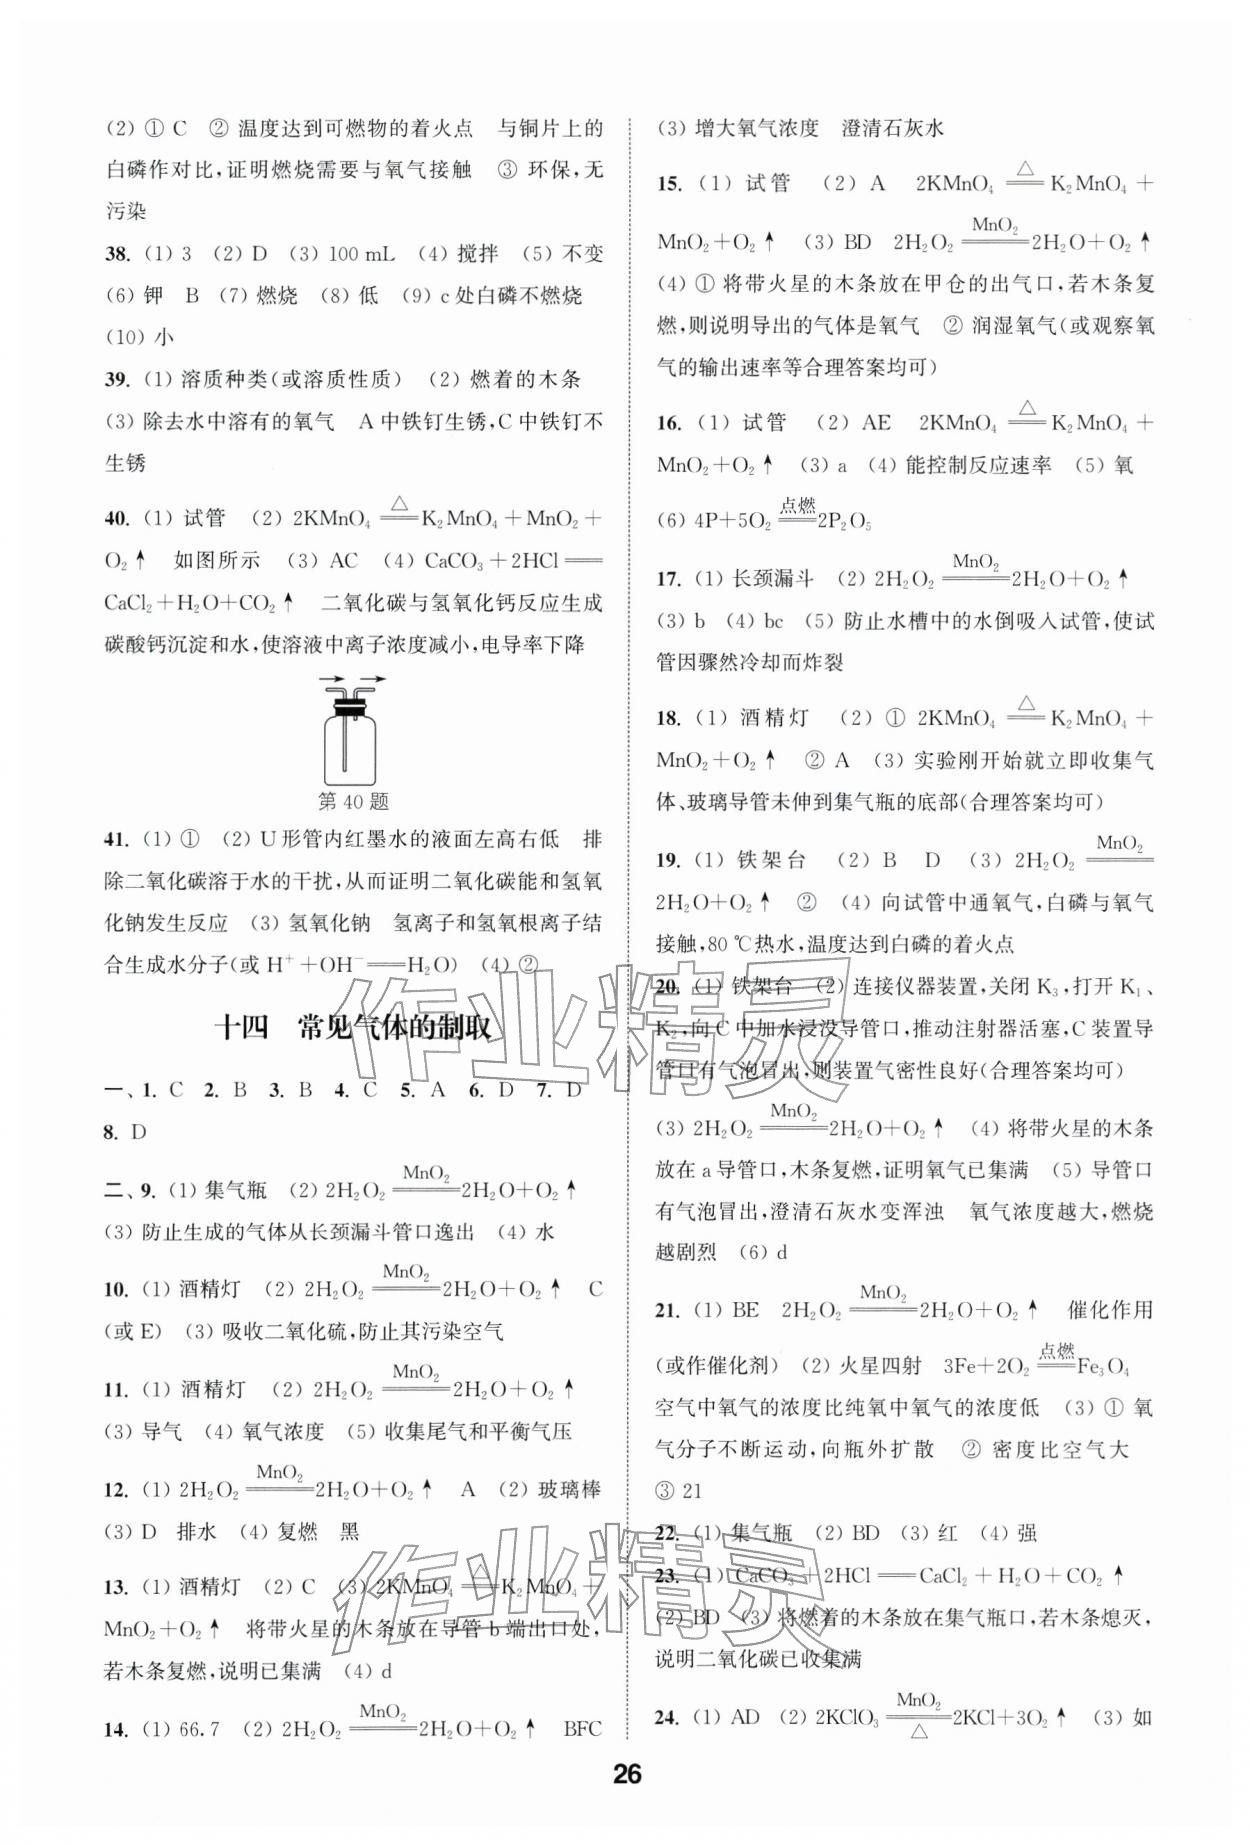 (2) ① C ② 温度达到可燃物的着火点 与铜片上的
白磷作对比,证明燃烧需要与氧气接触 ③ 环保,无
污染
38. (1) 3 (2) D (3) 100 mL (4) 搅拌 (5) 不变
(6) 钾 B (7) 燃烧 (8) 低 (9) c处白磷不燃烧
(10) 小
39. (1) 溶质种类(或溶质性质) (2) 燃着的木条
(3) 除去水中溶有的氧气 A中铁钉生锈,C中铁钉不
生锈
40. (1) 试管 (2) 2KMnO₄ =△= K₂MnO₄+MnO₂+
O₂↑ 如图所示 (3) AC (4) CaCO₃+2HCl══
CaCl₂+H₂O+CO₂↑ 二氧化碳与氢氧化钙反应生成
碳酸钙沉淀和水,使溶液中离子浓度减小,电导率下降
第40题
41. (1) ① (2) U形管内红墨水的液面左高右低 排
除二氧化碳溶于水的干扰,从而证明二氧化碳能和氢氧
化钠发生反应 (3) 氢氧化钠 氢离子和氢氧根离子结
合生成水分子(或 H⁺+OH⁻══H₂O) (4) ②
十四 常见气体的制取
一、1. C 2. B 3. B 4. C 5. A 6. D 7. D
8. D
二、9. (1) 集气瓶 (2) 2H₂O₂ =MnO₂= 2H₂O+O₂↑
(3) 防止生成的气体从长颈漏斗管口逸出 (4) 水
10. (1) 酒精灯 (2) 2H₂O₂ =MnO₂= 2H₂O+O₂↑ C
(或E) (3) 吸收二氧化硫,防止其污染空气
11. (1) 酒精灯 (2) 2H₂O₂ =MnO₂= 2H₂O+O₂↑
(3) 导气 (4) 氧气浓度 (5) 收集尾气和平衡气压
12. (1) 2H₂O₂ =MnO₂= 2H₂O+O₂↑ A (2) 玻璃棒
(3) D 排水 (4) 复燃 黑
13. (1) 酒精灯 (2) C (3) 2KMnO₄ =△= K₂MnO₄+
MnO₂+O₂↑ 将带火星的木条放在导管b端出口处,
若木条复燃,说明已集满 (4) d
14. (1) 66.7 (2) 2H₂O₂ =MnO₂= 2H₂O+O₂↑ BFC
(3) 增大氧气浓度 澄清石灰水
15. (1) 试管 (2) A 2KMnO₄ =△= K₂MnO₄+
MnO₂+O₂↑ (3) BD 2H₂O₂ =MnO₂= 2H₂O+O₂↑
(4) ① 将带火星的木条放在甲仓的出气口,若木条复
燃,则说明导出的气体是氧气 ② 润湿氧气(或观察氧
气的输出速率等合理答案均可)
16. (1) 试管 (2) AE 2KMnO₄ =△= K₂MnO₄+
MnO₂+O₂↑ (3) a (4) 能控制反应速率 (5) 氧
(6) 4P+5O₂ =点燃= 2P₂O₅
17. (1) 长颈漏斗 (2) 2H₂O₂ =MnO₂= 2H₂O+O₂↑
(3) b (4) bc (5) 防止水槽中的水倒吸入试管,使试
管因骤然冷却而炸裂
18. (1) 酒精灯 (2) ① 2KMnO₄ =△= K₂MnO₄+
MnO₂+O₂↑ ② A (3) 实验刚开始就立即收集气
体、玻璃导管未伸到集气瓶的底部(合理答案均可)
19. (1) 铁架台 (2) B D (3) 2H₂O₂ =MnO₂=
2H₂O+O₂↑ ② (4) 向试管中通氧气,白磷与氧气
接触,80 ℃热水,温度达到白磷的着火点
20. (1) 铁架台 (2) 连接仪器装置,关闭K₃,打开K₁、
K₂,向C中加水浸没导管口,推动注射器活塞,C装置导
管口有气泡冒出,则装置气密性良好(合理答案均可)
(3) 2H₂O₂ =MnO₂= 2H₂O+O₂↑ (4) 将带火星的木条
放在a导管口,木条复燃,证明氧气已集满 (5) 导管口
有气泡冒出,澄清石灰水变浑浊 氧气浓度越大,燃烧
越剧烈 (6) d
21. (1) BE 2H₂O₂ =MnO₂= 2H₂O+O₂↑ 催化作用
(或作催化剂) (2) 火星四射 3Fe+2O₂ =点燃= Fe₃O₄
空气中氧气的浓度比纯氧中氧气的浓度低 (3) ① 氧
气分子不断运动,向瓶外扩散 ② 密度比空气大
③ 21
22. (1) 集气瓶 (2) BD (3) 红 (4) 强
23. (1) CaCO₃+2HCl══CaCl₂+H₂O+CO₂↑
(2) BD (3) 将燃着的木条放在集气瓶口,若木条熄灭,
说明二氧化碳已收集满
24. (1) AD (2) 2KClO₃ =MnO₂/△= 2KCl+3O₂↑ (3) 如
26
作业精灵
作业精灵